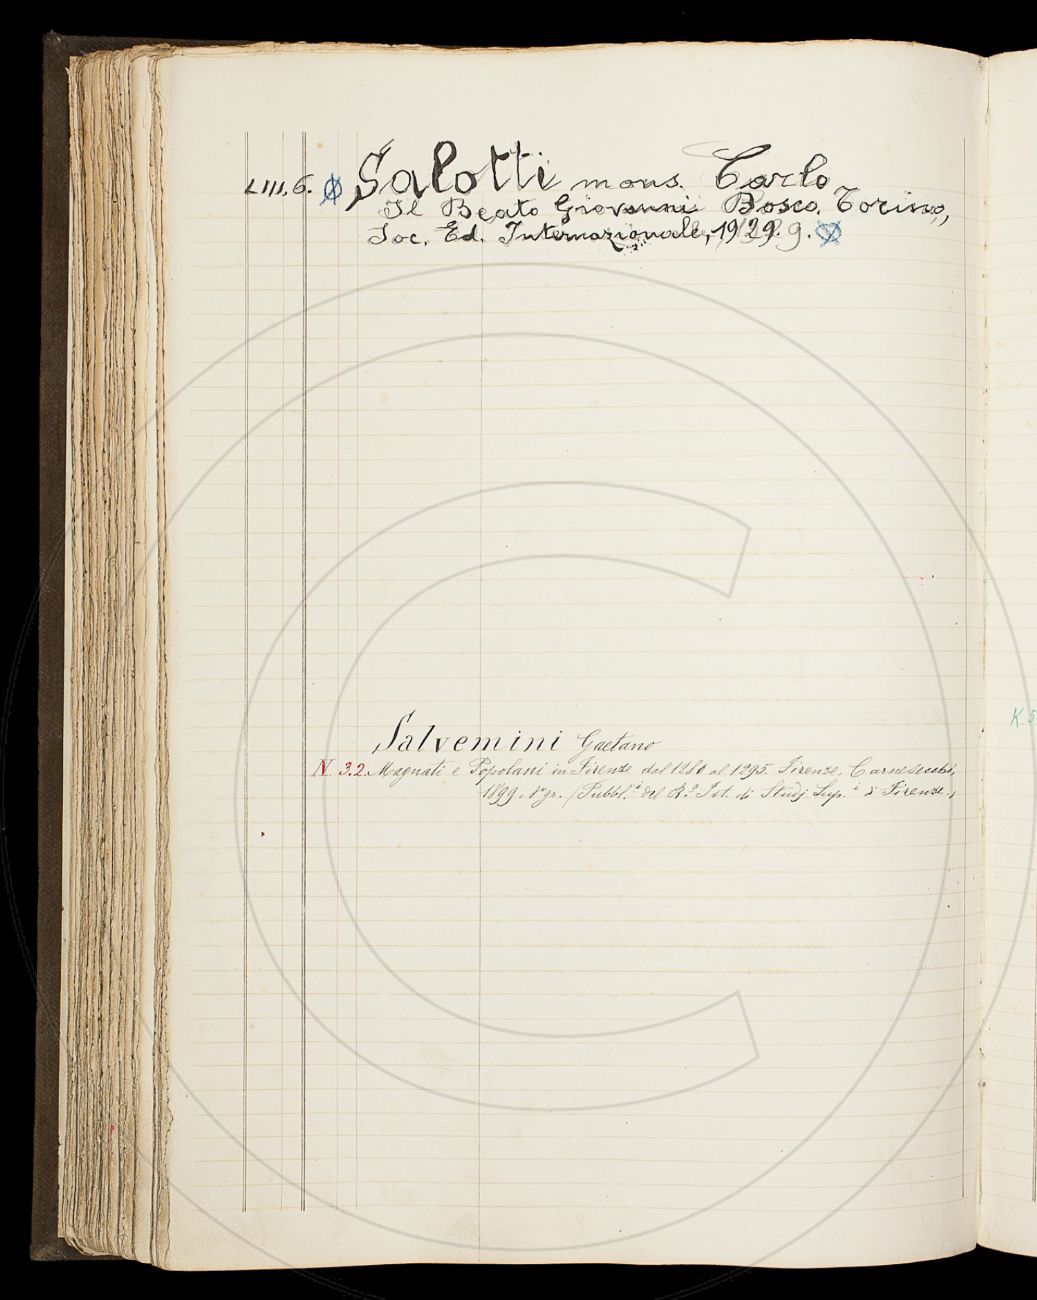 LIII. 6. Salotti mons. Carlo
Il Beato Giovanni Bosco. Torino,
Soc. Ed. Internazionale, 1929.
Salvemini Gaetano
N. 3.2. Magnati e Popolani in Firenze dal 1280 al 1295. Firenze, Carnesecchi,
1899. 8° gr. (Pubbl.i del R.o Ist. di Studj Sup.i di Firenze.)
K. 5